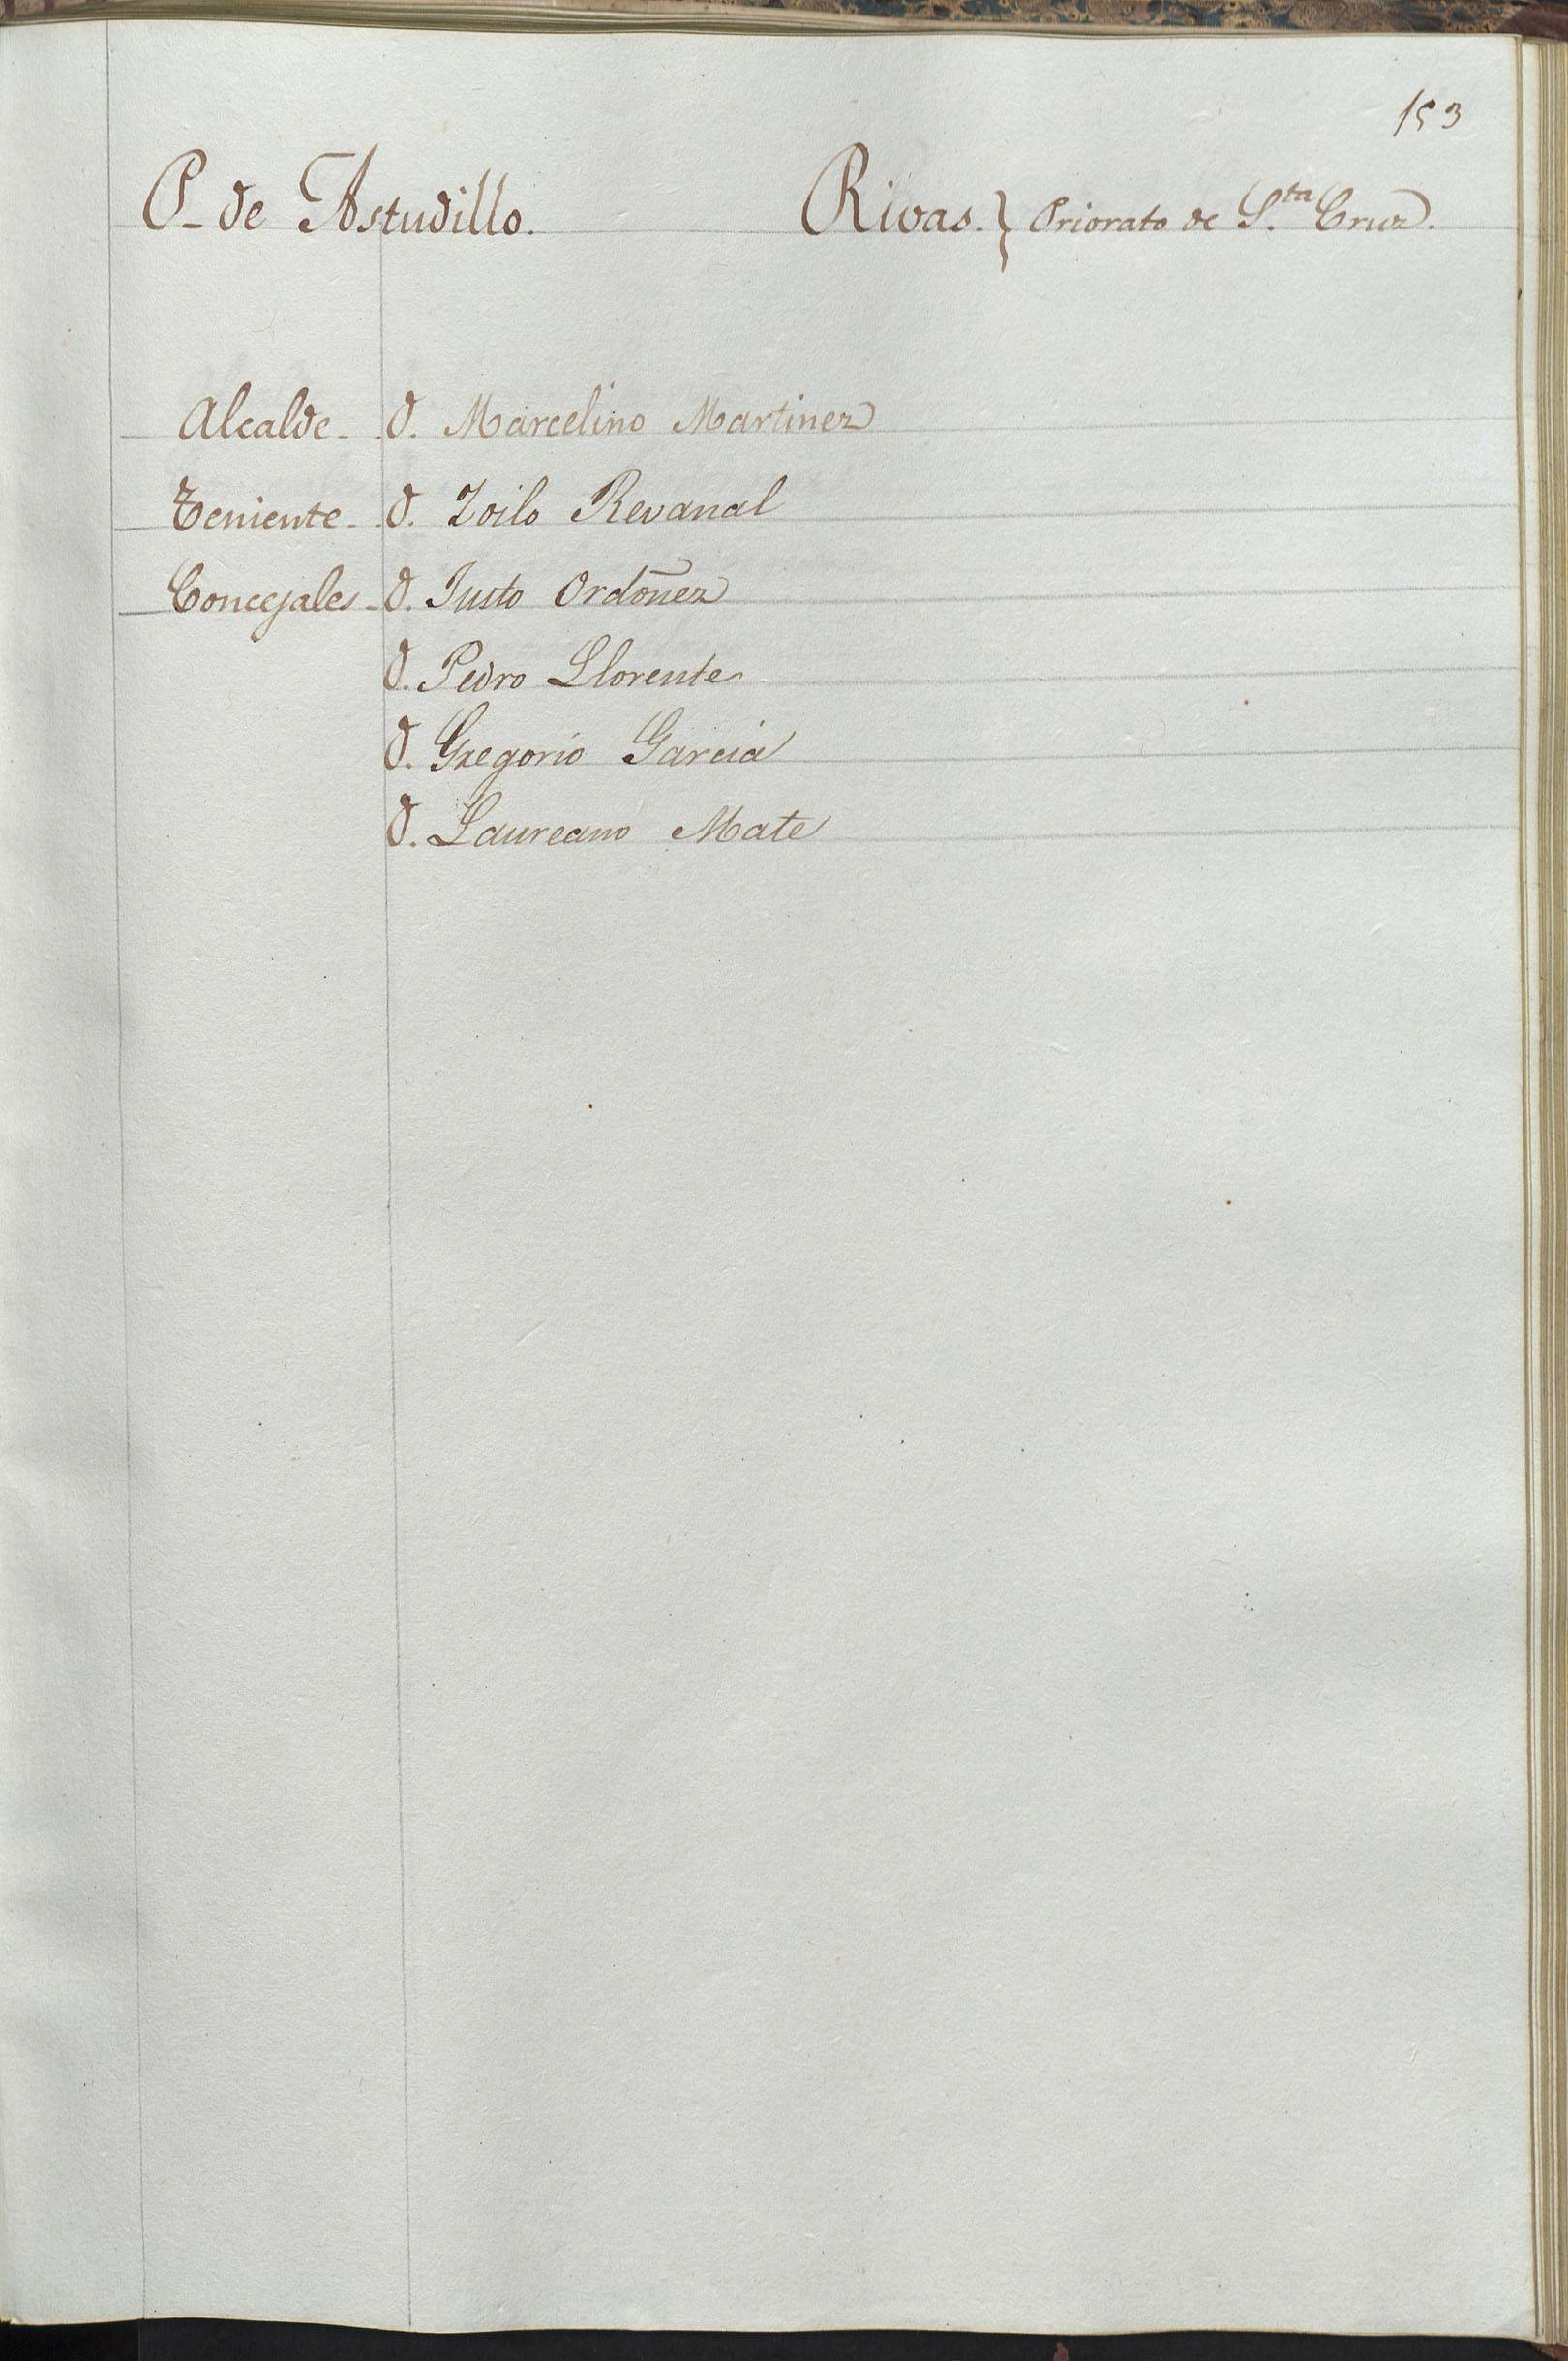 153
P- de Astudillo. Rivas. } Priorato de S.ta Cruz.
Alcalde - D. Marcelino Martinez
Teniente - D. Zoilo Revanal
Concejales - D. Justo Ordoñez
D. Pedro Llorente
D. Gregorio Garcia
D. Laureano Mate